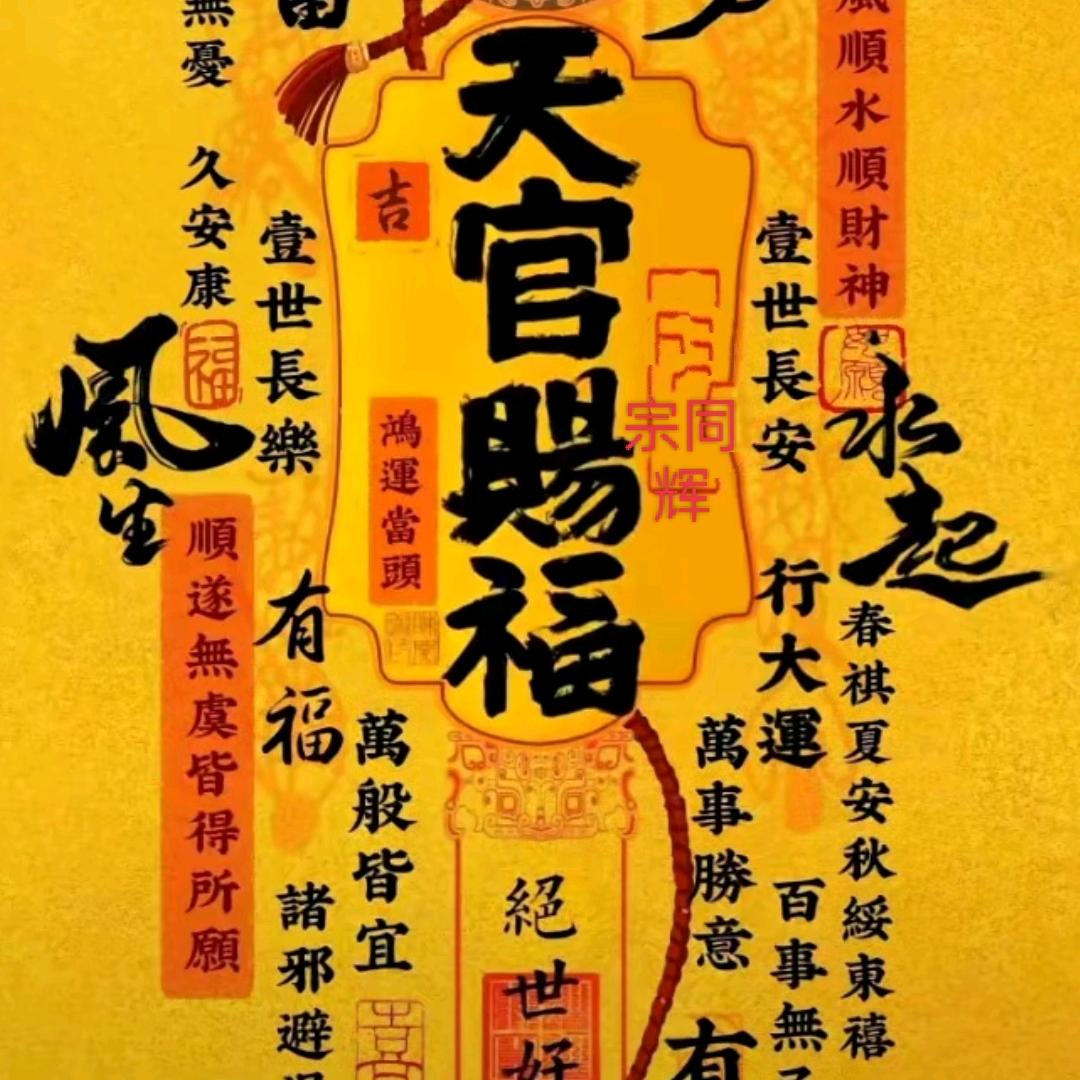 天官賜福
吉
鴻運當頭
宗同
辉
風順水順財神
水起
壹世長安
行大運
春祺夏安秋綏東禧
萬事勝意
百事無
有
絕世好
無憂 久安康
福
風生
壹世長樂
順遂無虞皆得所願
有福
萬般皆宜
諸邪避
吉